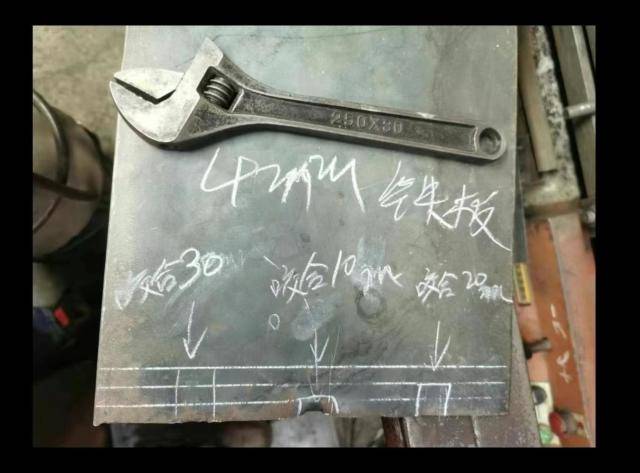 250X30
4mm 铁板
咬合30 咬合10mm 咬合20mm